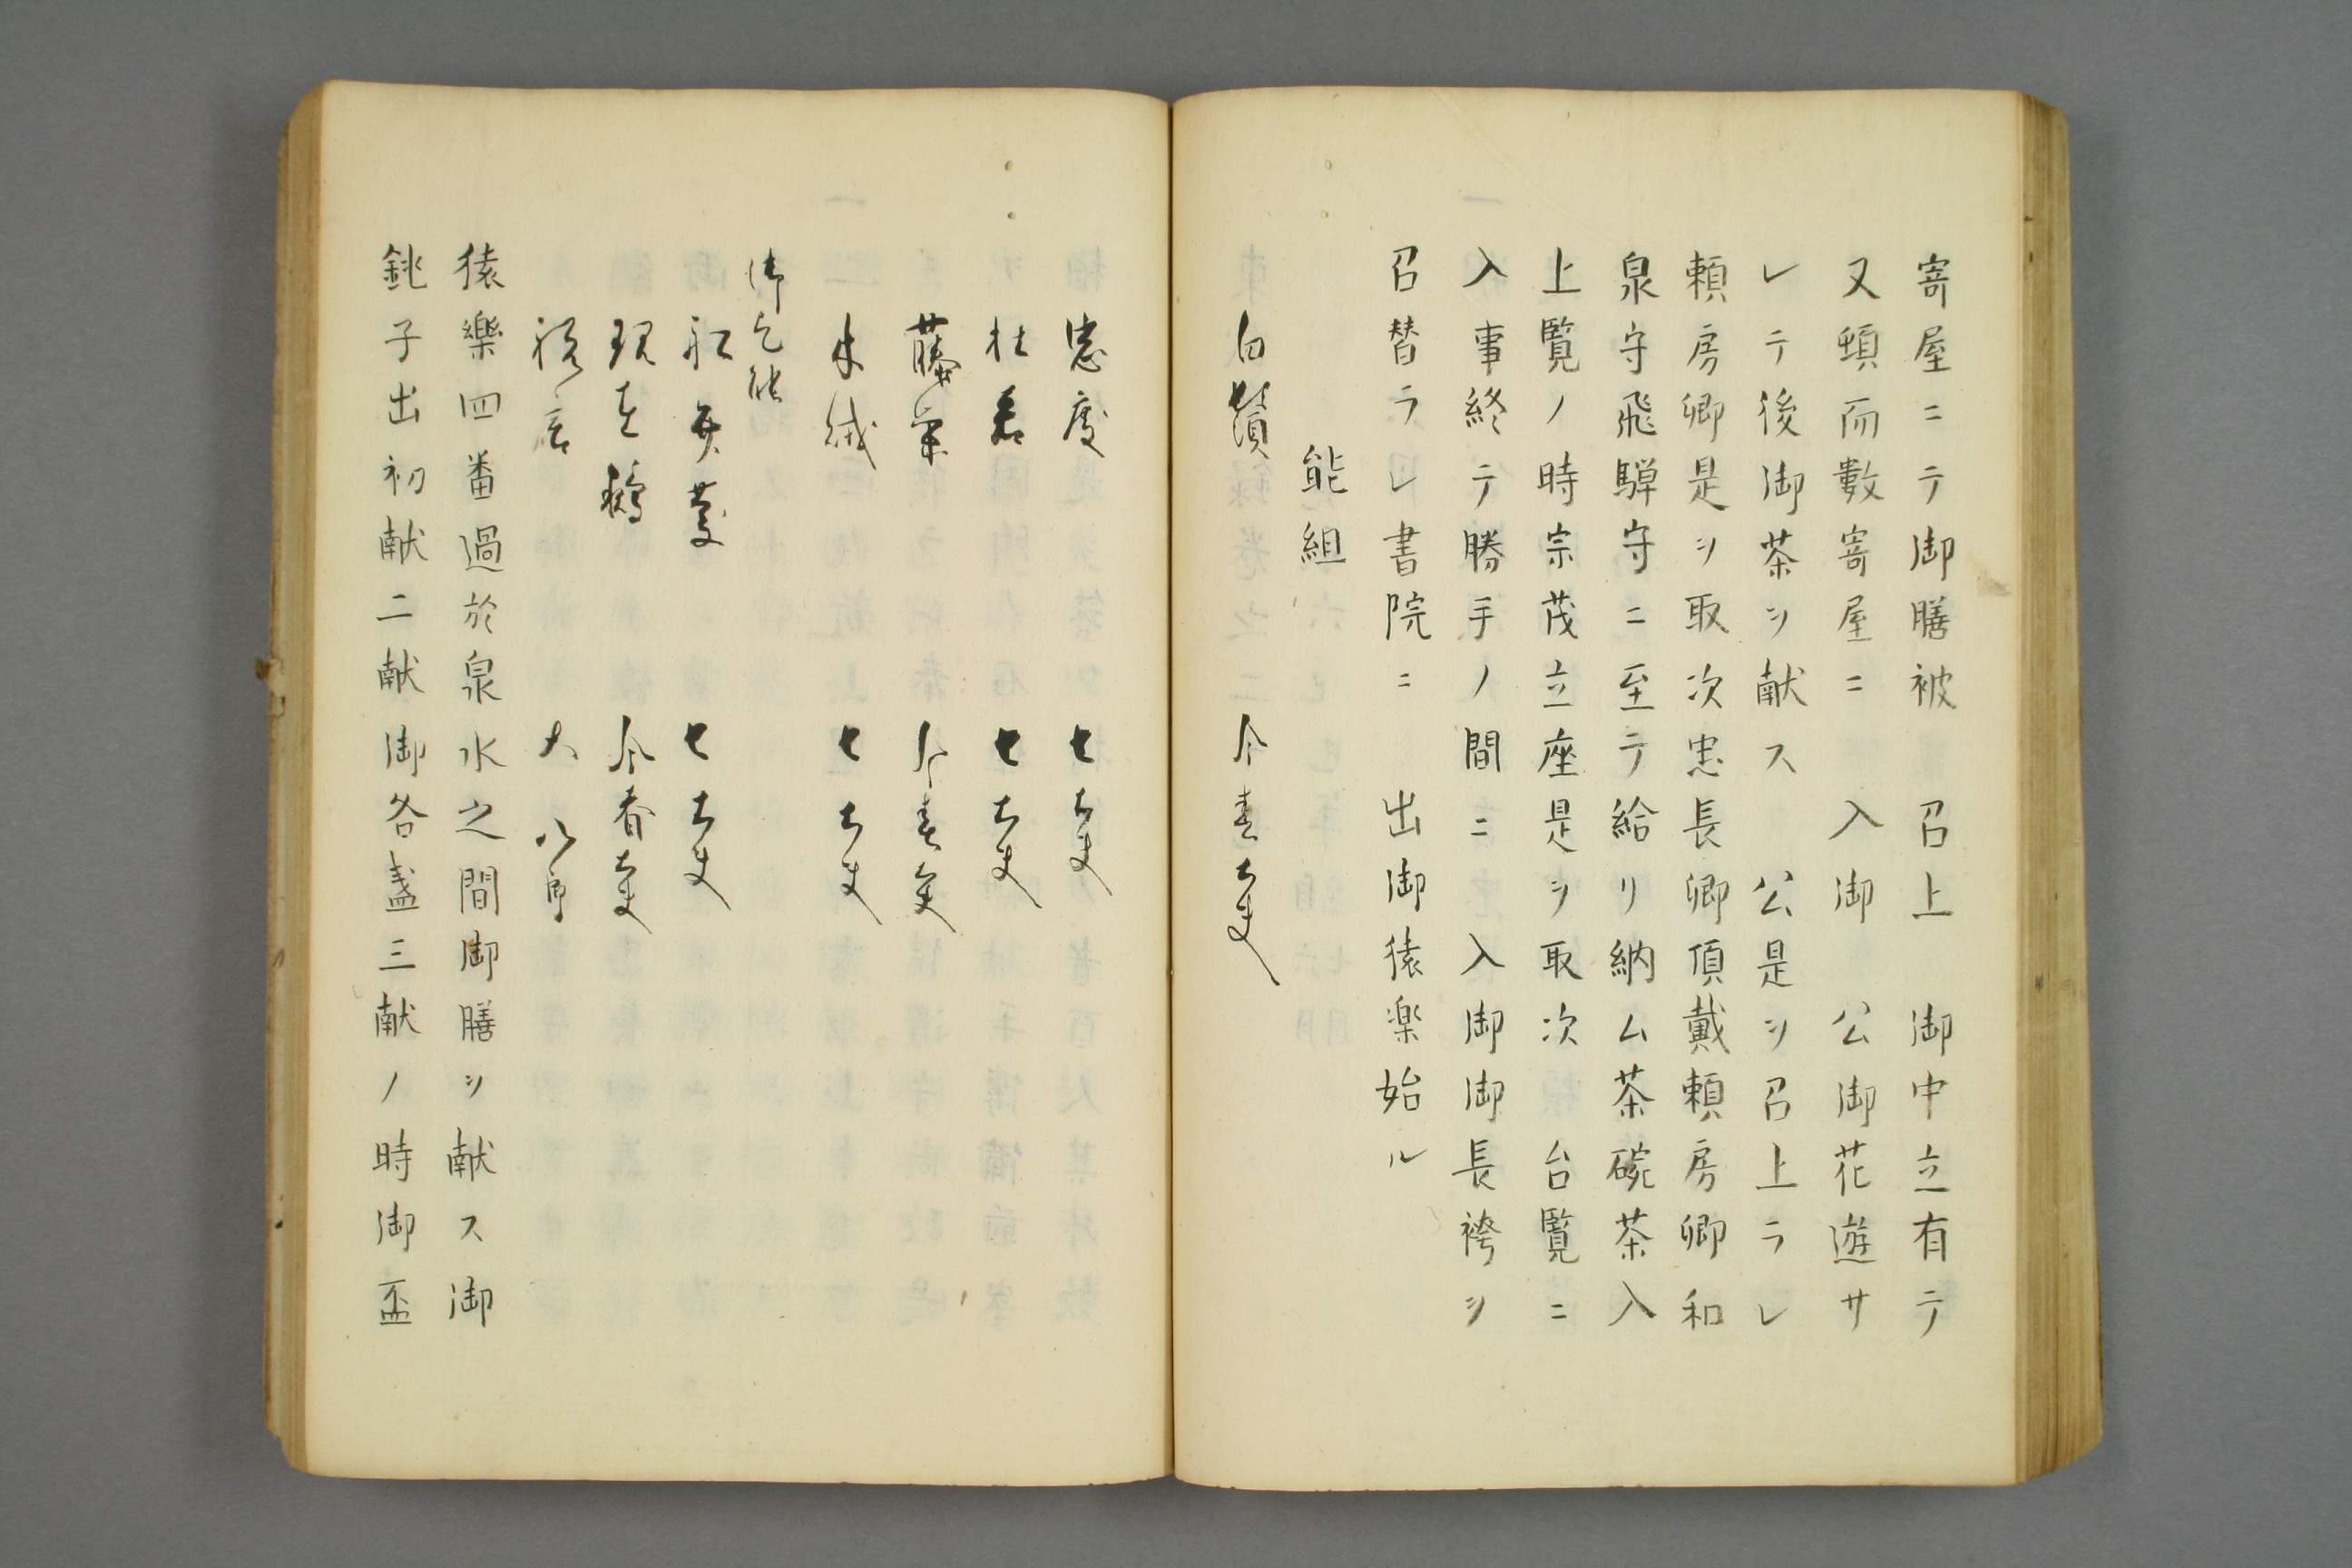 寄屋ニテ御膳被　召上　御中立有テ
又頓而數寄屋ニ　入御　公御花遊サ
レテ後御茶ヲ献ス　公是ヲ召上ラレ
頼房卿是ヲ取次忠長卿頂戴頼房卿和
泉守飛騨守ニ至テ給リ納ム茶碗茶入
上覧ノ時宗茂立座是ヲ取次　台覧ニ
入事終テ勝手ノ間ニ　入御御長袴ヲ
召替ラレ書院ニ　出御猿楽始ル
能組
白鬚　今春大夫
忠度　七大夫
杜若　七大夫
藤栄　今春大夫
朱絨　七大夫
御乞能
祝言　大八郎
猿樂四番過於泉水之間御膳ヲ献ス御
銚子出初献二献御各盞三献ノ時御盃